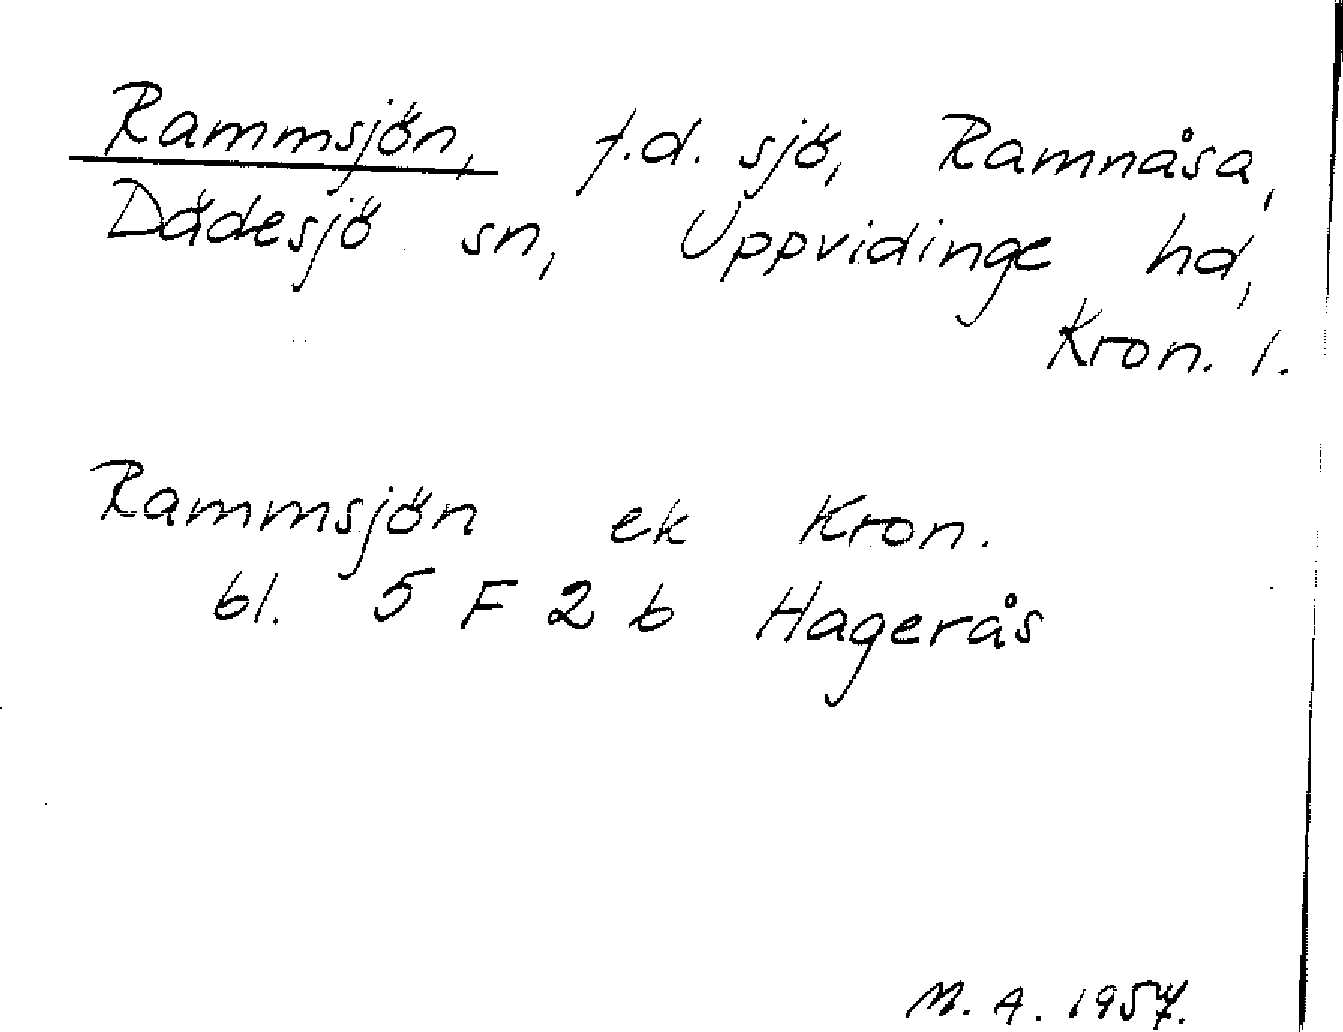 Rammsjön, f.d. sjö, Ramnåsa,
Dädesjö sn, Uppvidinge hd,
Kron. l.
Rammsjön ek Kron.
bl. 5 F 2 b Hagerås
M. A. 1957.